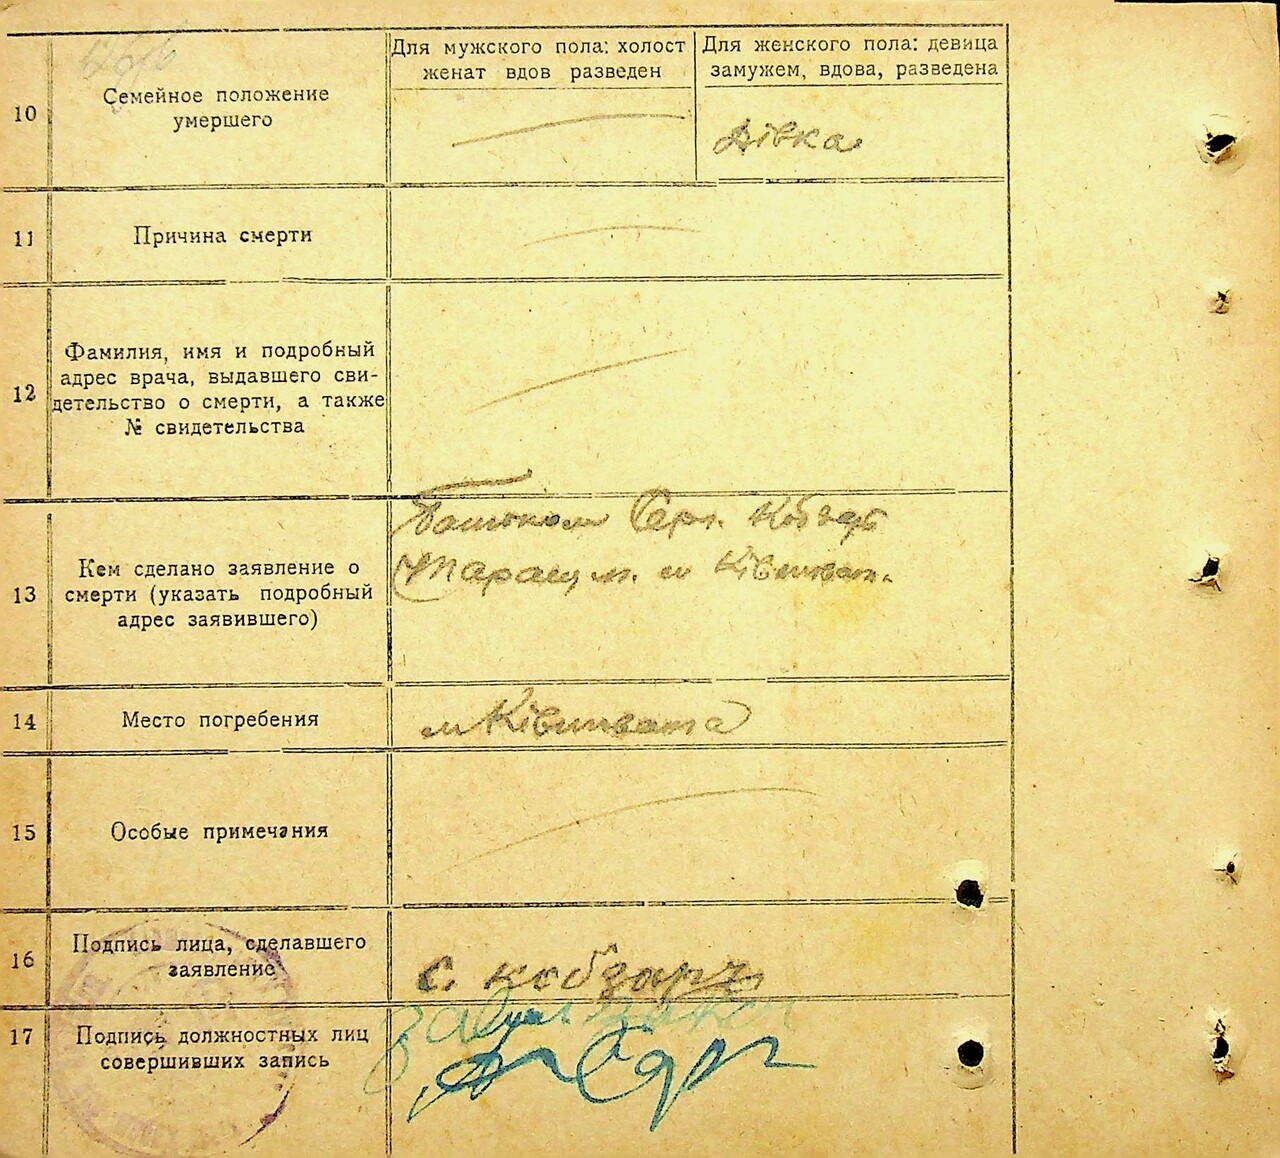 Для мужского пола: холост
женат вдов разведен
Для женского пола: девица
замужем, вдова, разведена
10
Семейное положение
умершего
Дівка
11
Причина смерти
12
Фамилия, имя и подробный
адрес врача, выдавшего сви-
детельство о смерти, а также
№ свидетельства
13
Кем сделано заявление о
смерти (указать подробный
адрес заявившего)
Батьком Серг. Кобзар
м
14
Место погребения
м Ківшвата
15
Особые примечания
16
Подпись лица, сделавшего
заявление
С. кобзарь
17
Подпись должностных лиц
совершивших запись